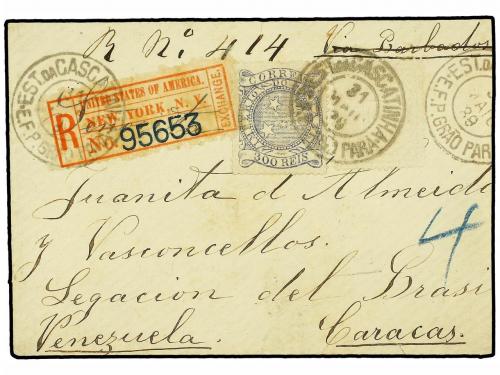 R Nº 414 Via Barbados
EST. DA CASCATINHA
E.F.P. GRÃO PARÁ
UNITED STATES OF AMERICA.
NEW YORK, N.Y.
EXCHANGE.
R
No. 95653
CORREIO
300 REIS
EST. DA CASCATINHA
31
PARÁ
EST. DA
89
E.F.P. GRÃO PAR
Juanita d Almeida
y Vasconcellos.
4
Legacion del Brasi
Venezuela. Caracas.